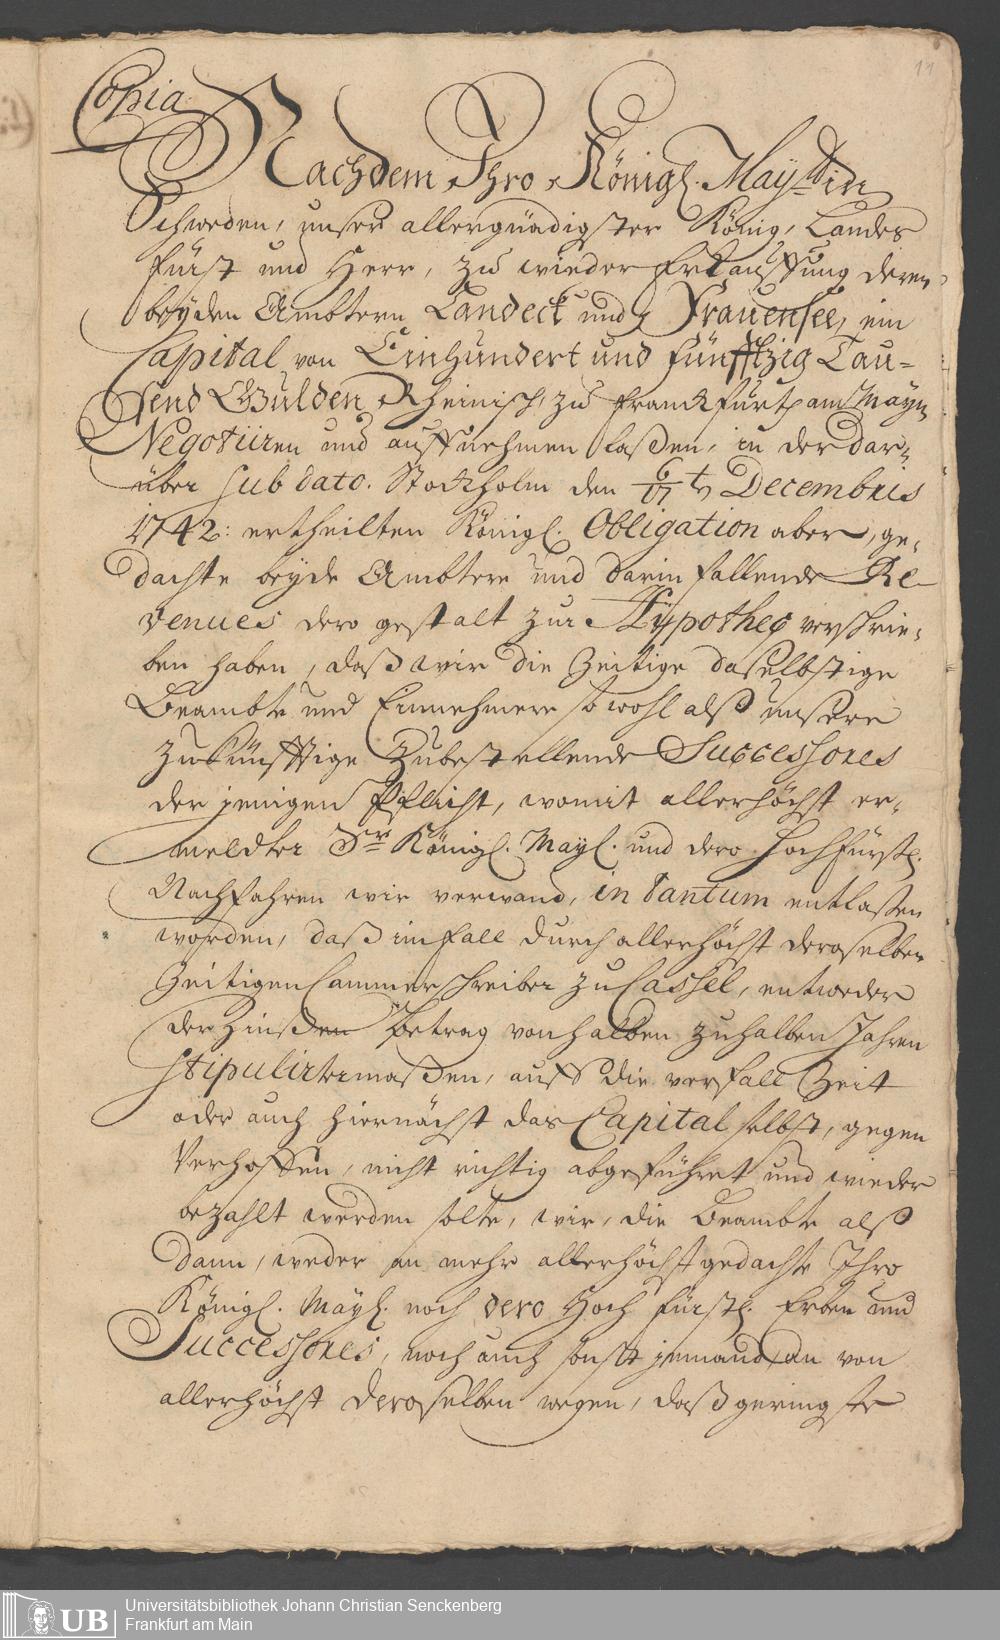 Copia
11
Nachdem Ihro Königl. May.t in
Schweden, unser allergnädigster König, Landes
Fürst und Herr, zu wieder Erkauffung deren
beyden Ambtern Landeck und Frauensee, ein
Capital von Einhundert und fünfftzig Tau-
send Gulden Rheinisch, zu Franckfurth am Mayn
Negotiiren und auffnehmen laßen, in der dar-
über sub dato. Stockholm den 6/17 t. Decembris
1742: ertheilten Königl. Obligation aber, ge-
dachte beyde Ambtere und darin fallende Re-
venues dero gestalt zur Hypothec verschrie-
ben haben, daß wir die Zeitige daselbstige
Beambte und Einnehmere so wohl alß unsere
zukünfftige Zubestellende Successores
der jenigen Pflicht, womit allerhöchst er-
meldter Sr. Königl. Mayl. und dero Hochfürstl.
Nachfahren wir verwand, in tantum entlaßen
worden, daß im fall durch allerhöchst deroselben
Zeitigen Cammerschreiber zu Cassel, entweder
der Zinßen betrag von halben zu halben Jahren
stipulirtermaßen, auff die verfall Zeit
oder auch hiernächst das Capital selbst, gegen
Verhoffen, nicht richtig abgeführet und wieder
bezahlt werden solte, wir, die Beambte alß
dann, weder an mehr allerhöchstgedachte Ihro
Königl. Mayl. noch dero Hoch fürstl. Erben und
Successores, noch auch sonst jemand, an von
allerhöchst deroselben wegen, daß geringste
UB
Universitätsbibliothek Johann Christian Senckenberg
Frankfurt am Main